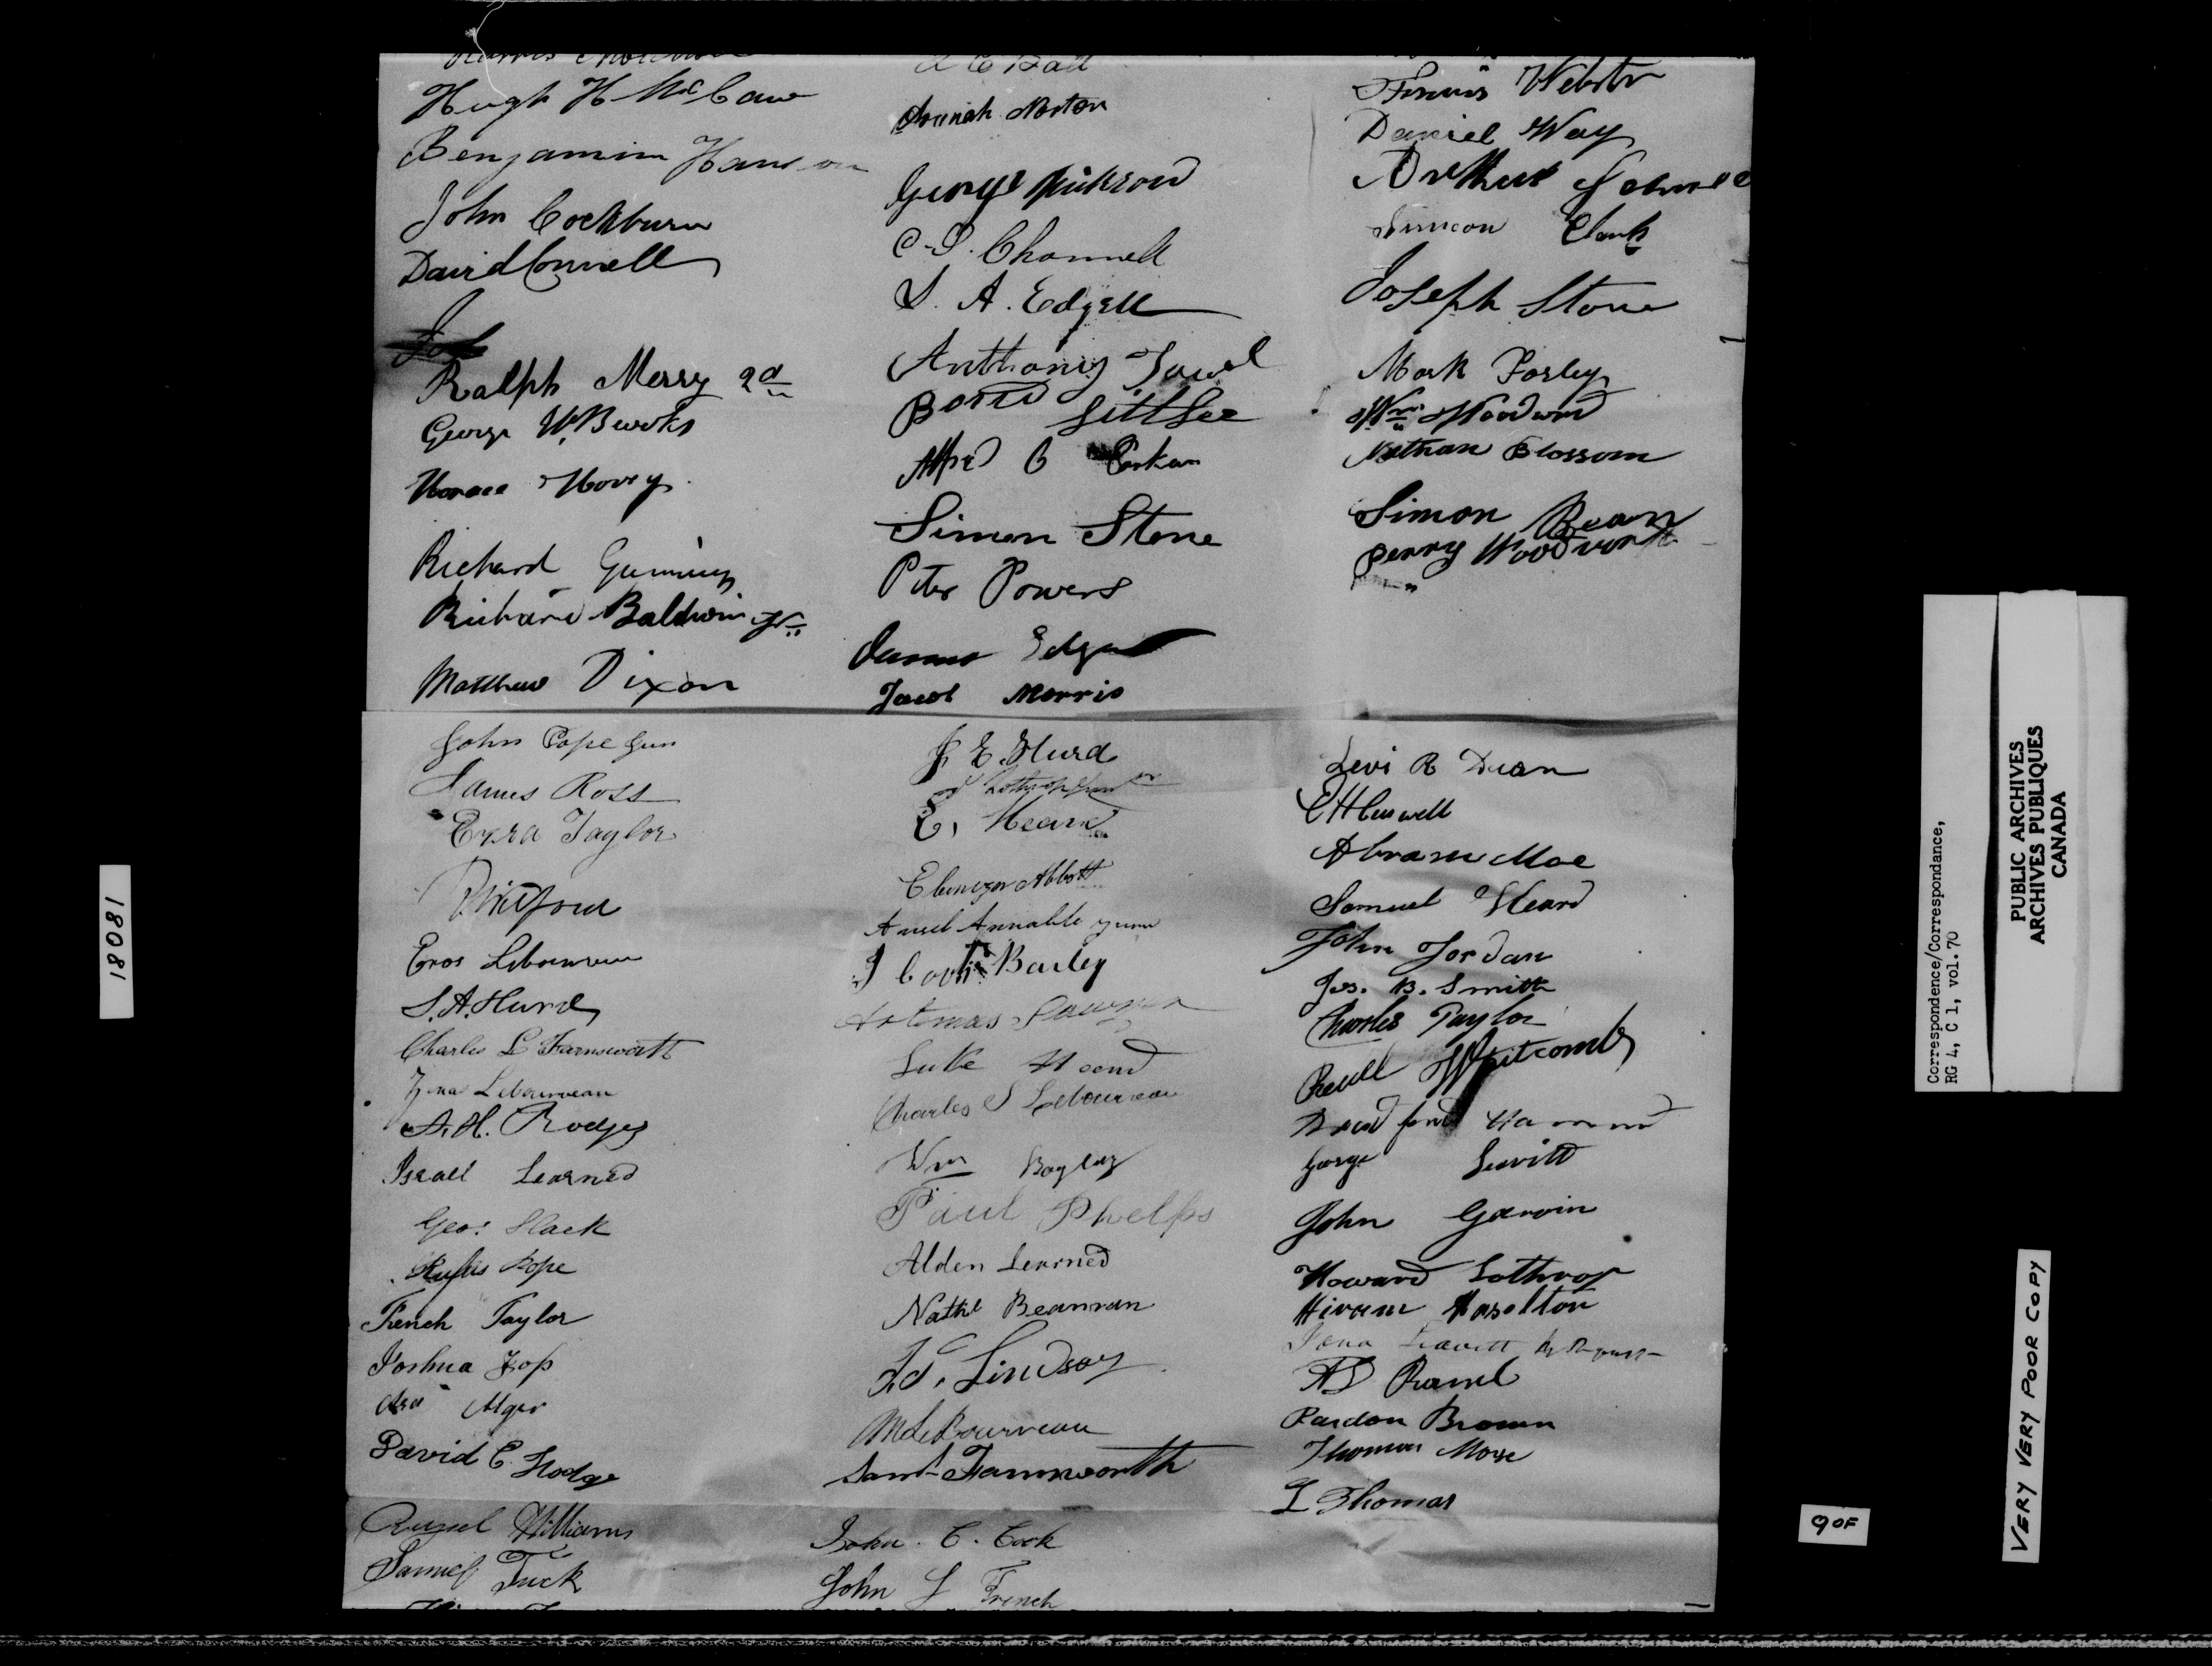 Hugh H McCaw
Benjamin Hanson
John Cockburn
David Connell
Job
Ralph Merry 2d
George W. Burks
Horace Hovey
Richard Gumming
Richard Baldwin Jr
Matthew Dixon
Norton
George
C. S. Channell
S. A. Edgell
Anthony
Alfred
Simon Stone
Peter Powers
James Edgar
Jacob Morris
Francis Webster
Daniel Way
Arthur
Simeon Clark
Joseph Stone
Mark Forley
Wm Woodward
Nathan Blossom
Simon Bean
Perry Woodworth
John Pope Jun
James Ross
Ezra Taylor
Eros Lebourveau
S. A. Hurd
Charles L Farnsworth
Zena Lebourveau
A. H. Rodgs
Israel Learned
Geo: Slack
Rufus Pope
French Taylor
Joshua Foss
Asa Alger
David C Hodge
Russel Williams
Samuel Tuck
J. E. Hurd
E. Heard
Ebenezer Abbott
Ansel Annable Junr
Bailey
Artemas Sawyer
Luke Heard
Charles S Lebourveau
Wm Bayley
Paul Phelps
Alden Learned
Nathl Beaman
Lindsay
M LeBourveau
Saml Farnsworth
John. C. Cook
John L French
Levi R Dean
C H Caswell
Abram Moe
Samuel Heard
John Jordan
Jos. B. Smith
Charles Taylor
Whitcomb
Bradford Hammond
George Leavitt
John Garvin
Howard Lothrop
Hiram Haselton
Leavitt
A D Rand
Pardon Brown
Thomas Morse
L Thomas
18081
Correspondence/Correspondance,
RG 4, C 1, vol. 70
PUBLIC ARCHIVES
ARCHIVES PUBLIQUES
CANADA
9 OF
VERY VERY POOR COPY